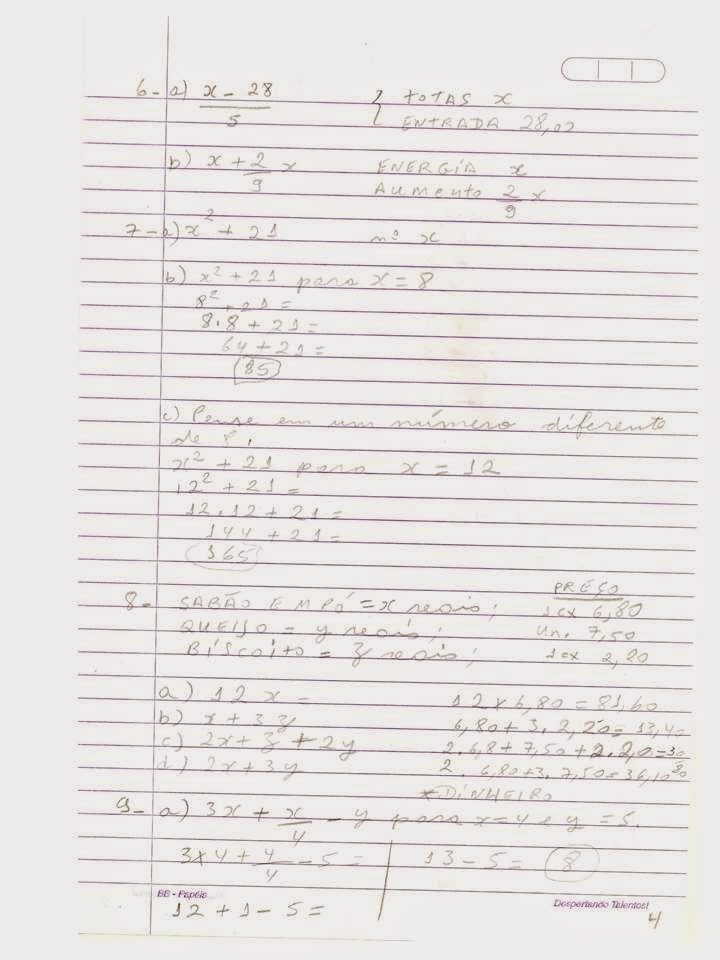 6- a) x - 28 / 5 { TOTAS x
ENTRADA 28,00
b) x + 2/9 x ENERGÍA x
Aumento 2/9 x
7- a) x² + 21 nº x
b) x² + 21 para x = 8
8² + 21 =
8.8 + 21 =
64 + 21 =
85
c) Pense em um número diferente
de 8.
x² + 21 para x = 12
12² + 21 =
12.12 + 21 =
144 + 21 =
165
PREÇO
8- SABÃO EM PÓ = x reais; 1cx 6,80
QUEIJO = y reais; un. 7,50
BISCOITO = z reais; 1cx 2,20
a) 12 x = 12 x 6,80 = 81,60
b) x + 3 z 6,80 + 3. 2,20 = 13,40
c) 2x + z + 2y 2. 6,8 + 7,50 + 2.2,0 = 30
d) 2x + 3y 2. 6,80 + 3. 7,50 = 36,10
*DINHEIRO
9- a) 3x + x/4 - y para x = 4 e y = 5.
3x4 + 4/4 - 5 = 13 - 5 = 8
BB - Papéis
Despertando Talentos!
12 + 1 - 5 =
4